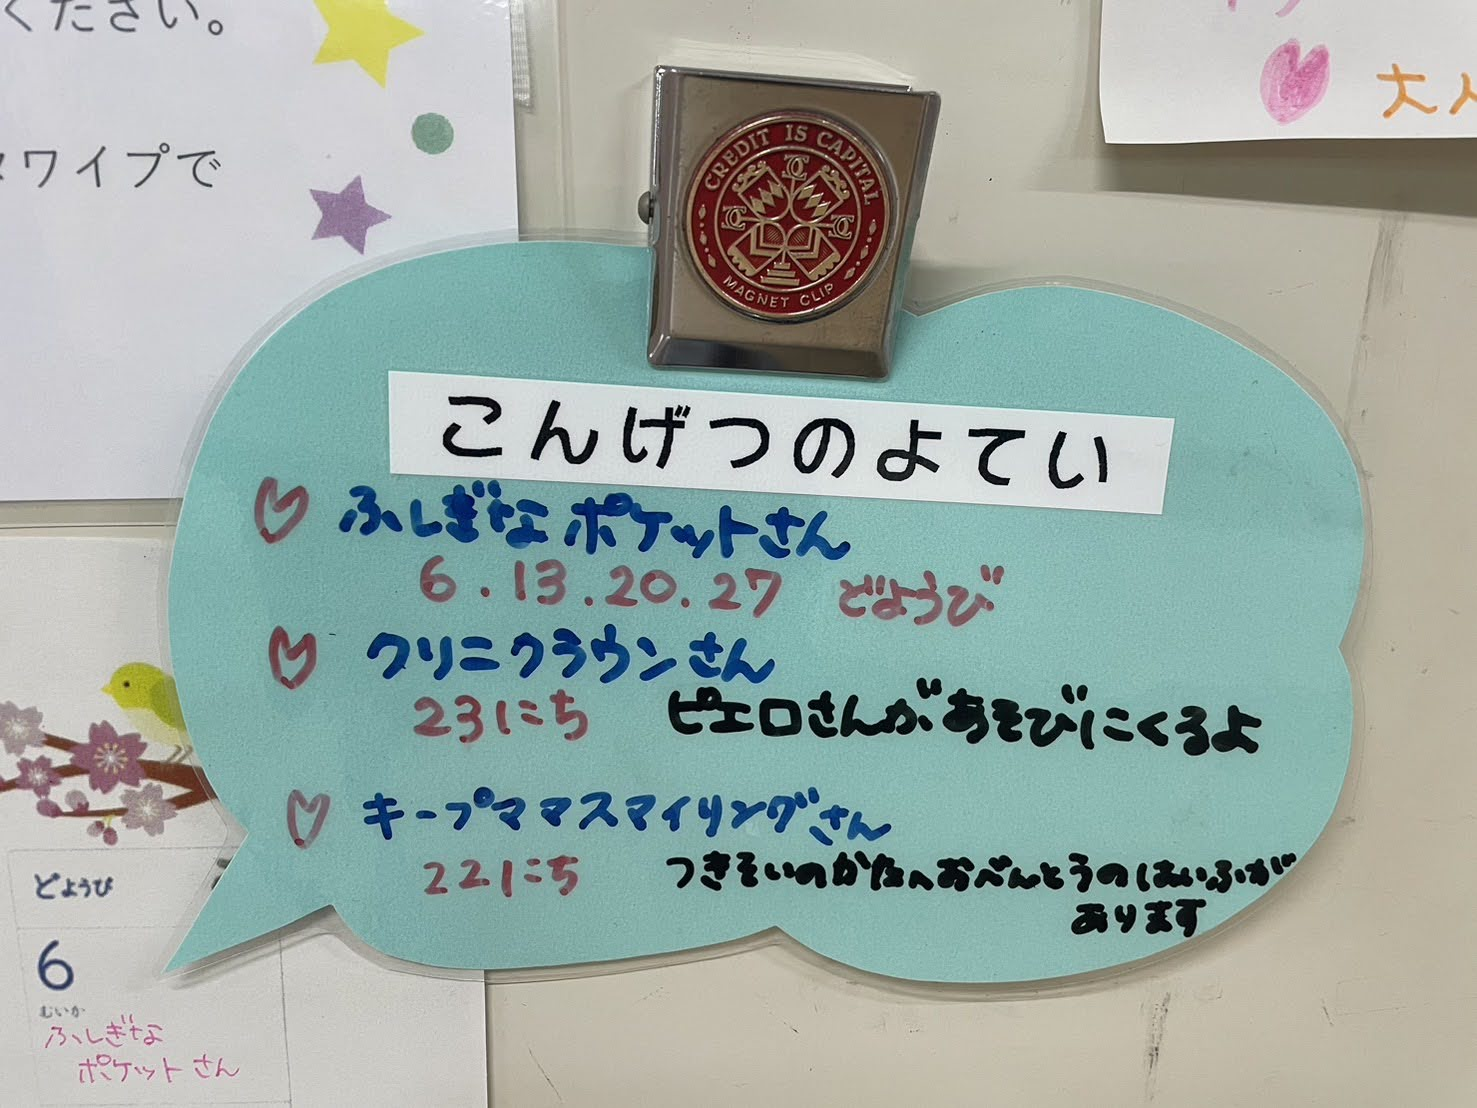 ください。
ワイプで
大人
CREDIT IS CAPITAL
MAGNET CLIP
こんげつのよてい
ふしぎなポケットさん
6.13.20.27 どようび
クリニクラウンさん
23にち ピエロさんがあそびにくるよ
キープママスマイリングさん
22にち つきそいのかたへおべんとうのはいふが
あります
どようび
6
むいか
ふしぎな
ポケットさん